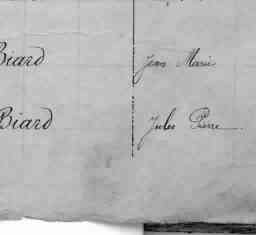 Biard Jean Marie
Biard Jules Pierre